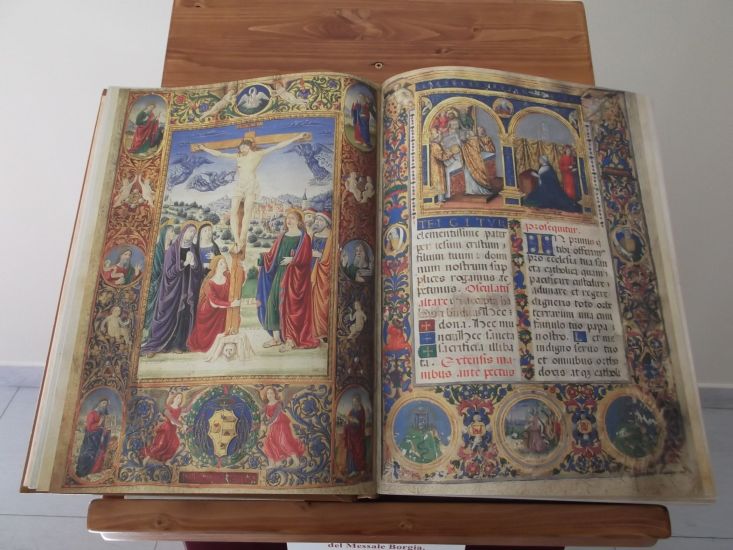 TE IGITVR
clementissime pater
per iesum cristum
filium tuum: domi
num nostrum sup
plices rogamus ac
petimus. Osculatur
altare
Hec
dona. Hec mu
nera. Hec sancta
sacrificia illiba
ta. Extensis ma
nibus ante pectus
prosequitur.
In primis q
tibi offerim
pro ecclesia tua san
cta catholica quam
pacificare custodire
adunare et regere
digneris toto orbe
terrarum una cum
famulo tuo papa
nostro. Et me
indigno servo tuo
et omnibus ortho
doxis atq catholi
del Messale Borgia.